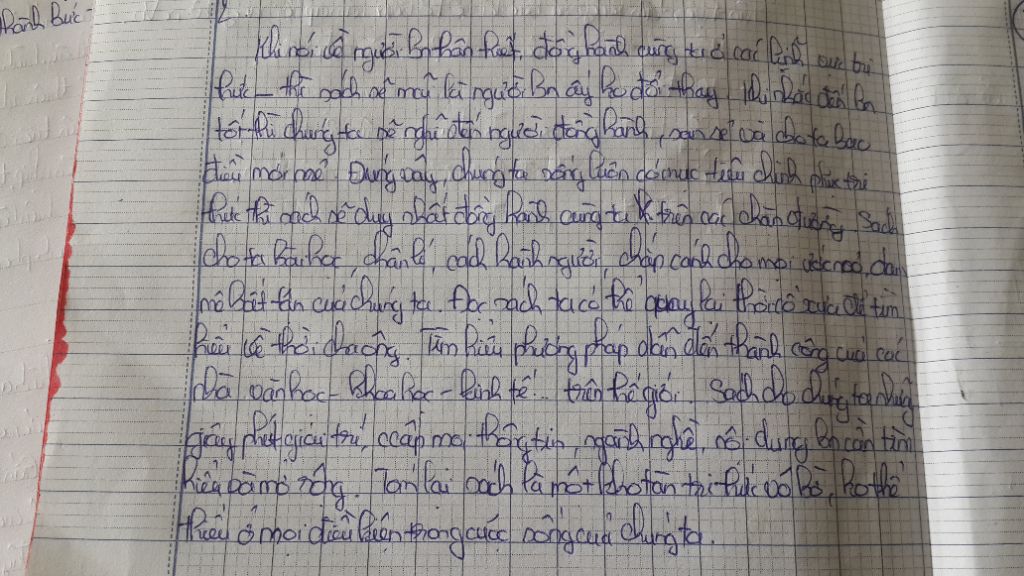 Thành Bức -
2.
Khi nói về người bn thân thiết, đồng hành cùng ta ở các lĩnh vực tri
thức - thì sách sẽ mãi là người bn ấy ko đổi thay. Khi nhắc đến bn
tốt thì chúng ta sẽ nghĩ đến người đồng hành, san sẻ và cho ta bao
điều mới mẻ. Đúng vậy, chúng ta sống luôn có mục tiêu chinh phục tri
thức thì sách sẽ duy nhất đồng hành cùng ta trên các chặn đường. Sách
cho ta bài học, chân lí, cách hành người, chấp cánh cho mọi ước mơ, đam
mê bất tận của chúng ta. Đọc sách ta có thể quay lại thời cổ xưa để tìm
hiểu về thời cha ông. Tìm hiểu phương pháp dẫn đến thành công của các
nhà văn học - khoa học - kinh tế... trên thế giới. Sách cho chúng ta những
giây phút giải trí, ccấp mọi thông tin, ngành nghề, nội dung bn cần tìm
hiểu và mở rộng. Tóm lại sách là một kho tàn tri thức vô bờ, ko thể
thiếu ở mọi điều kiện trong cuộc sống của chúng ta.